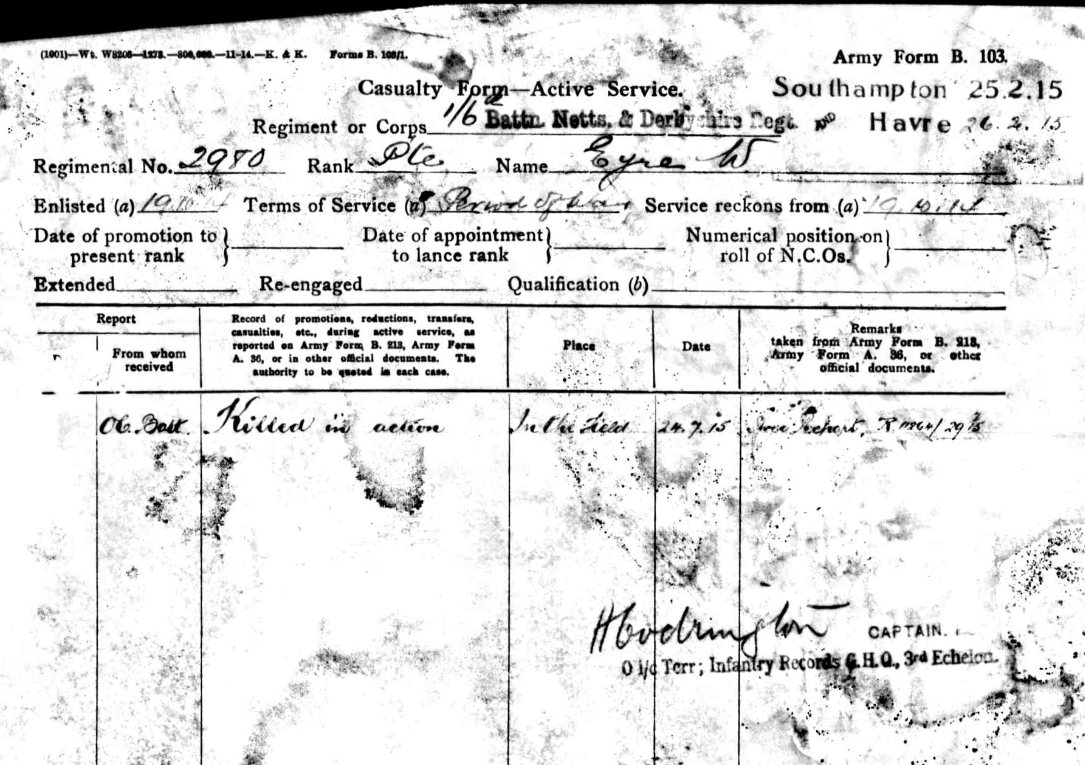 (1001)—Wt. W8206—1278.—500,000.—11-14.—K. & K. Forms B. 103/1.
Army Form B. 103.
Casualty Form—Active Service.
Southampton 25.2.15
Regiment or Corps 1/6 Battn. Notts. & Derbyshire Regt. AND Havre 26.2.15
Regimental No. 2980 Rank Pte. Name Eyre W
Enlisted (a) Terms of Service (a) Period of War, Service reckons from (a) 19.10.14
Date of promotion to present rank } Date of appointment to lance rank } Numerical position on roll of N.C.Os. }
Extended Re-engaged Qualification (b)
Report
From whom received
Record of promotions, reductions, transfers,
casualties, etc., during active service, as
reported on Army Form B. 213, Army Form
A. 36, or in other official documents. The
authority to be quoted in each case.
Place
Date
Remarks
taken from Army Form B. 213,
Army Form A. 36, or other
official documents.
OC. Batt. Killed in action In the Field 24.7.15
CAPTAIN.
O i/c Terr; Infantry Records G.H.Q., 3rd Echelon.